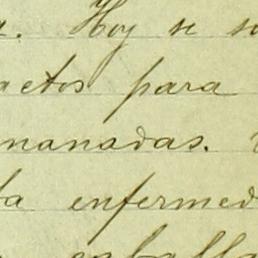 a. Hoy se so
actos para
nanadas.
ta enfermed
caballa